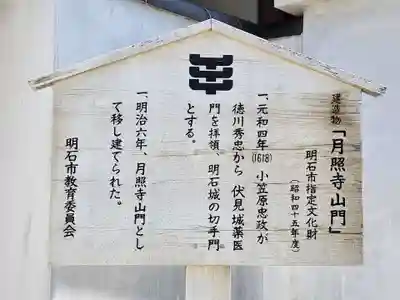 建造物「月照寺山門」
明石市指定文化財
(昭和四十五年度)
一、元和四年(1618)小笠原忠政が
徳川秀忠から 伏見城薬医
門を拝領、明石城の切手門
とする。
一、明治六年、月照寺山門とし
て移し建てられた。
明石市教育委員会